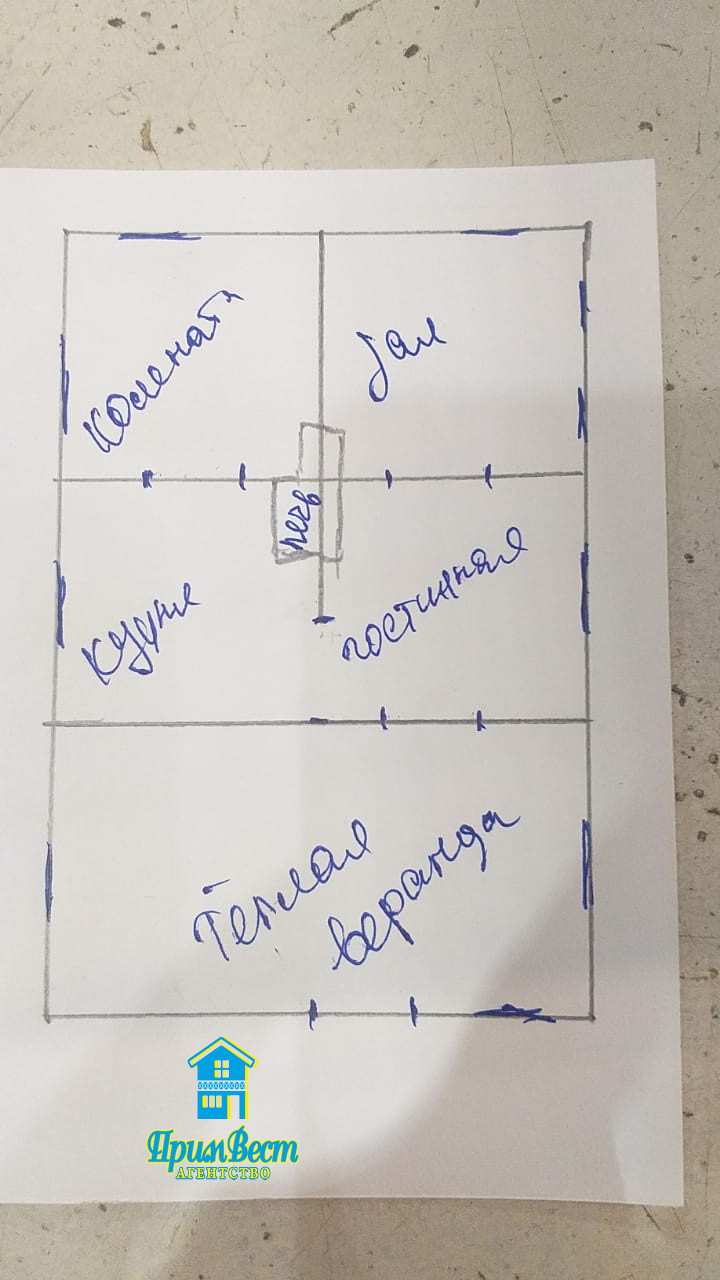 комната
зал
печь
кухня
гостинная
Теплая
веранда
ПримВест
АГЕНТСТВО